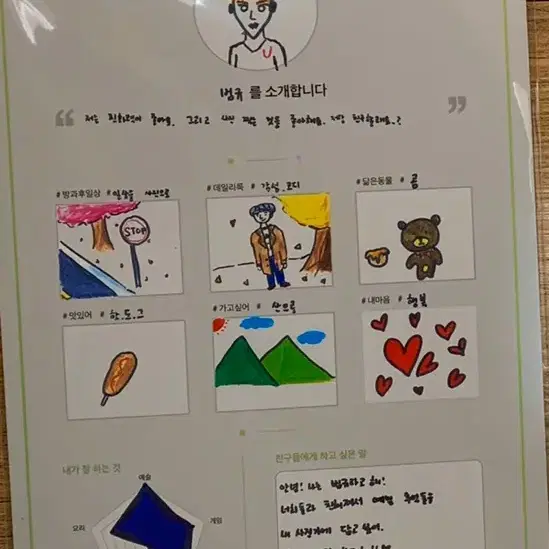 범규 를 소개합니다
저는 친화력이 좋아요. 그리고 사진 찍는 것을 좋아해요. 저랑 친구할래요?
#방과후일상 # 일상을 사진으로
#데일리룩 # 감성 코디
#닮은동물 # 곰
STOP
#맛있어 # 핫.도.그
#가고싶어 # 산으로
#내마음 # 행복
내가 잘 하는 것
예술
요리
게임
친구들에게 하고 싶은 말
안녕! 나는 범규라고 해!
너희들과 친해져서 예쁜 추억들을
내 사진기에 담고 싶어.